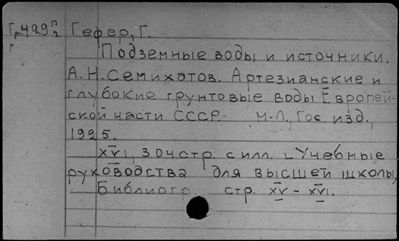 Гр429 П/2 Гефер, Г.
Г
Подземные воды и источники.
А.Н.Семихатов. Артезианские и
глубокие грунтовые воды Европей-
ской части СССР. М-Л, Гос. изд.,
1925.
XVI, 304стр. с илл. (Учебные
руководства для высшей школы,
Библиогр. стр. XV - XVI.